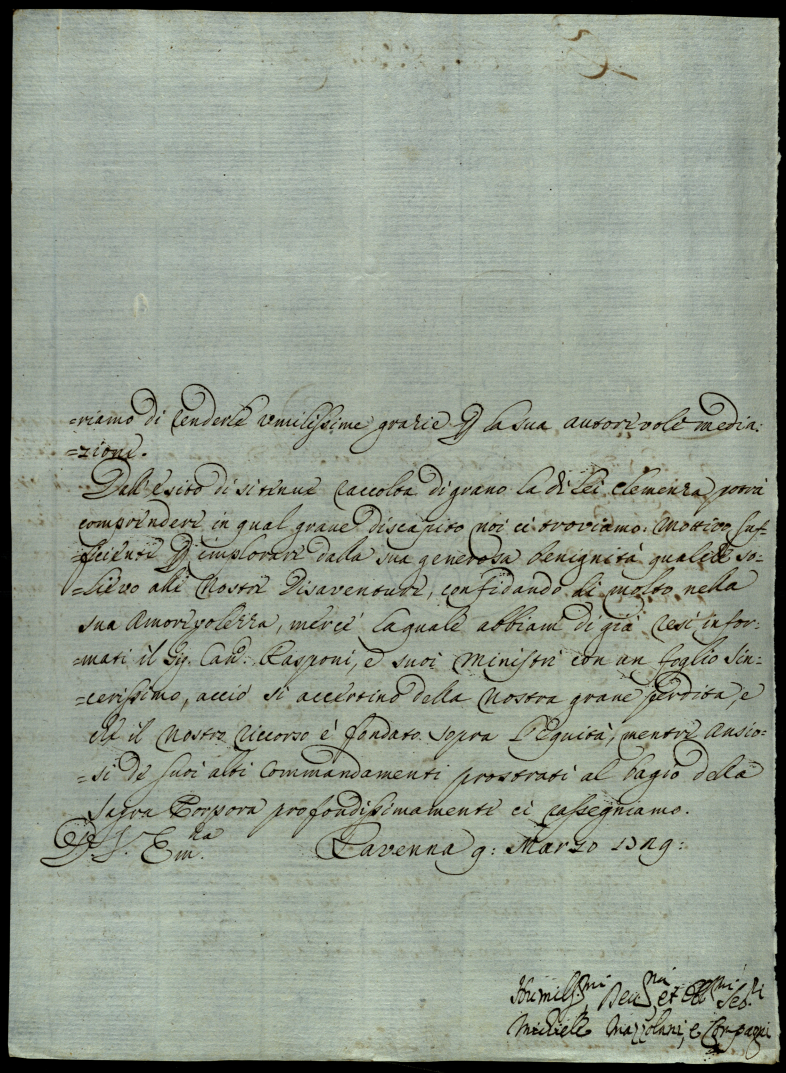 =riamo di renderle umilissime grazie p la sua autorevole media:
=zione.
Dall'esito di sì tenue raccolta di grano la di lei clemenza potrà
comprendere in qual grave discapito noi ci troviamo. Mottivo suf=
=ficiente p implorare dalla sua generosa benignità qualche so=
=lievo alle nostre disaventure, confidando di molto nella
sua amorevolezza, mercè la quale abbiam di già resi infor=
=mati il Sig. Cau: Rasponi, e suoi Ministri con un foglio sin=
=cerissimo, acciò si accertino della nostra grave perdita, e
che il nostro ricorso è fondato sopra l'equità, mentre ansio=
=si de suoi alti commandamenti prostrati al bagio della
Sagra Porpora profondissimamente ci rassegniamo.
D. V. Em.za Ravenna 9: Marzo
Humiliss.mi Deu.mi et Obb.mi
Michele Mazzolani, e Compagni